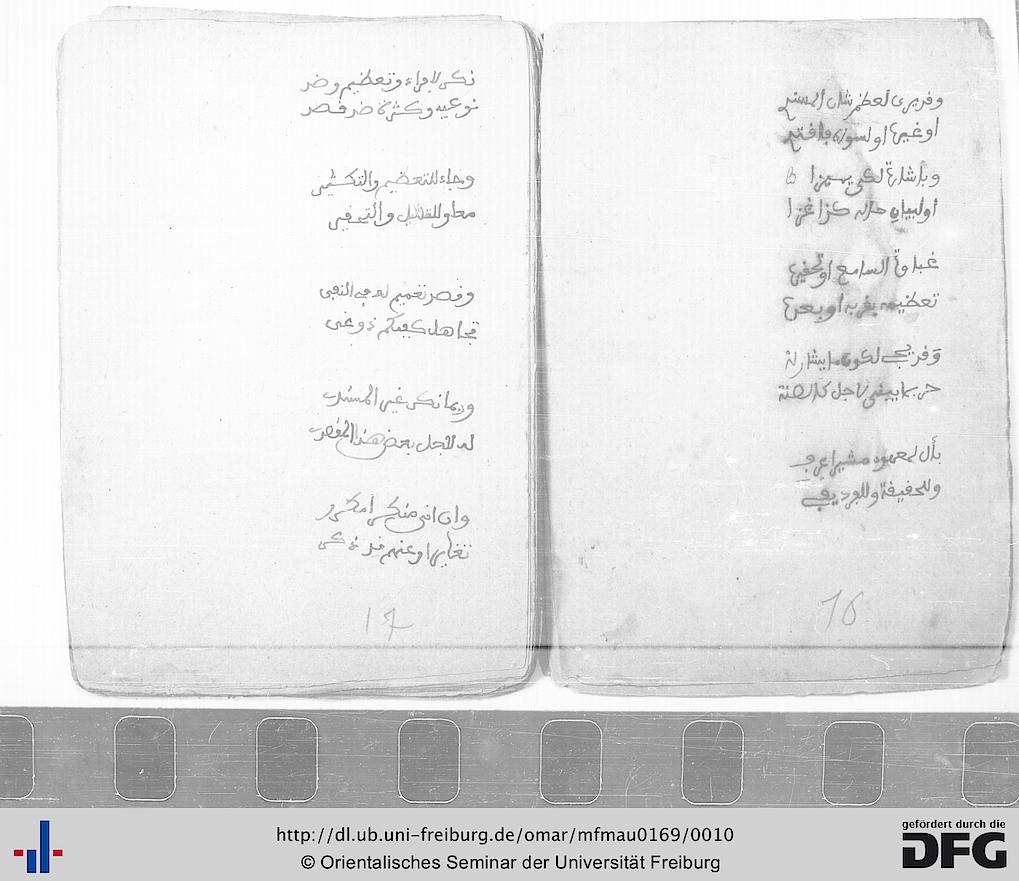 وقد يرى لعظم شان المسند
او غيرها او لسوى
وبإشارة لكي يميزا
او لبيان حاله كذا غزا
غباوة السامع او تحقيرها
تعظيمه بقربه او بعدها
وقد يجي لكون ما يشار له
حر بما يبنى لاجل
بأل لمعهود مشيرا
وللحقيقة وللفرد يفي
16
نكر لافراد وتعظيم وضد
نوعيه وكثرة ضد قصد
وجاء للتعظيم والتكثير
للتقليل والتحقير
وقصد تعميم له في النفي
تجاهل كفيكم ذو غي
وربما نكر غير المسند
له لاجل بعض هذا المقصد
وان اتى منكر مكرر
تغايرا وعنهم قد ذكر
17
http://dl.ub.uni-freiburg.de/omar/mfmau0169/0010
© Orientalisches Seminar der Universität Freiburg
gefördert durch die
DFG